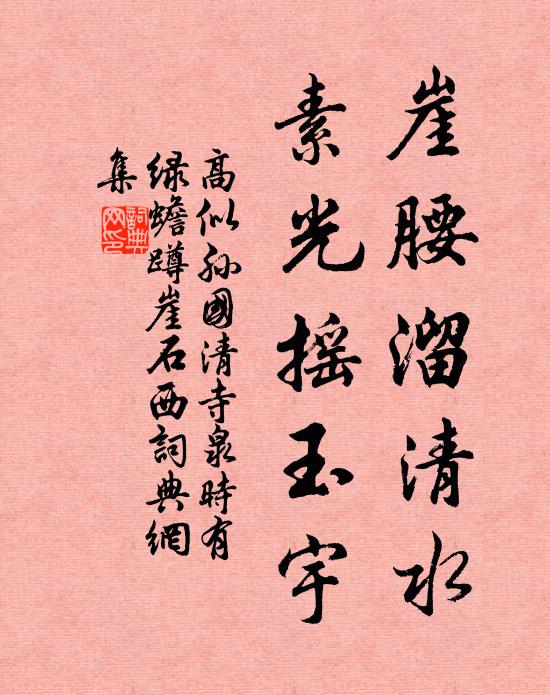 崖腰溜清水
素光摇玉宇
高似孙國清寺泉時有
绿蟾蹲崖石西詞典網
集
詞典
网印